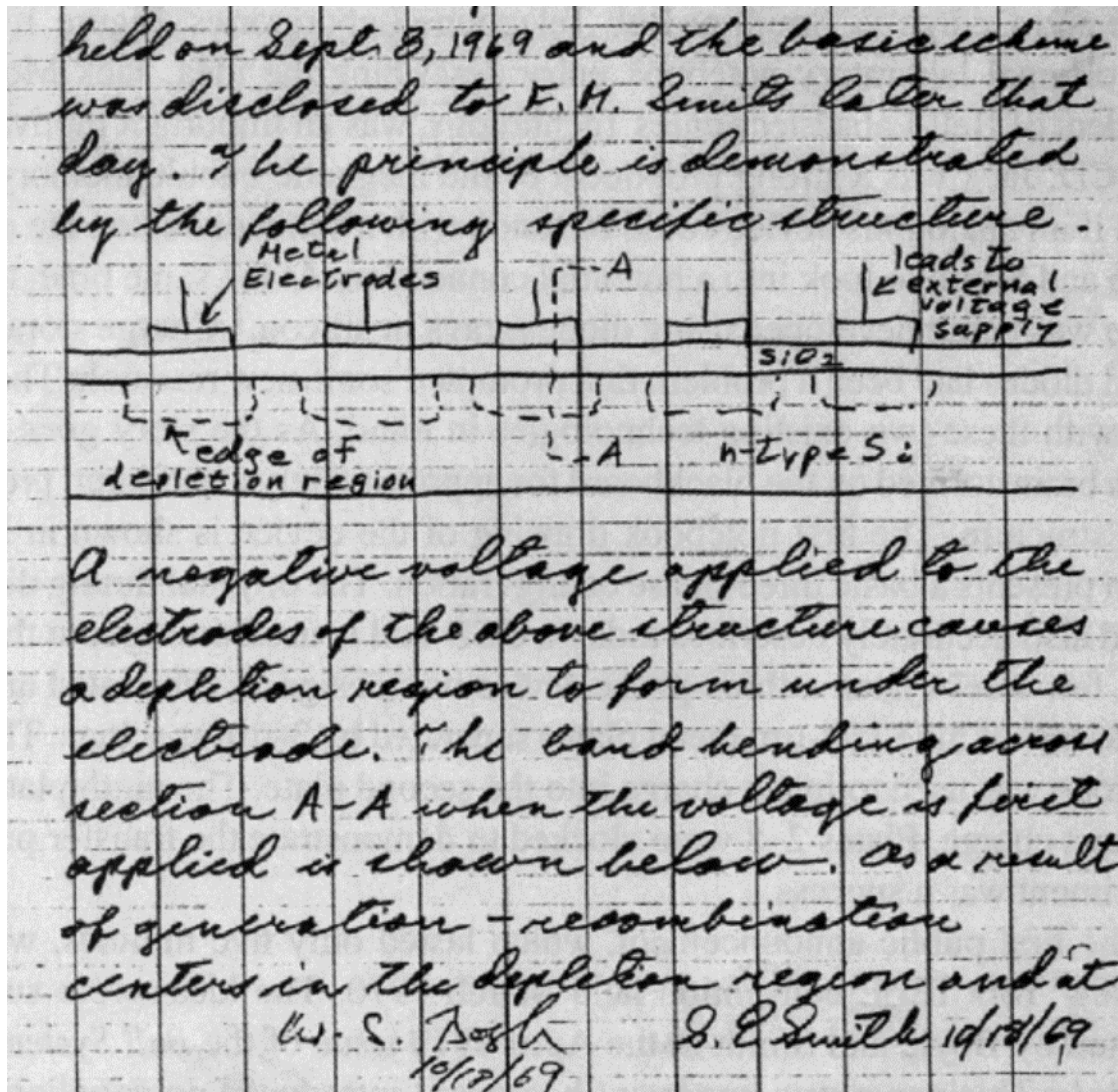 held on Sept. 8, 1969 and the basic scheme
was disclosed to F. M. Smits later that
day. The principle is demonstrated
by the following specific structure.
Metal
Electrodes
A
leads to
external
voltage
supply
SiO2
edge of
depletion region
A
n-type Si
A negative voltage applied to the
electrodes of the above structure causes
a depletion region to form under the
electrode. The band bending across
section A-A when the voltage is first
applied is shown below. As a result
of generation - recombination
centers in the depletion region and at
W. S. Boyle
10/18/69
G E Smith 10/18/69